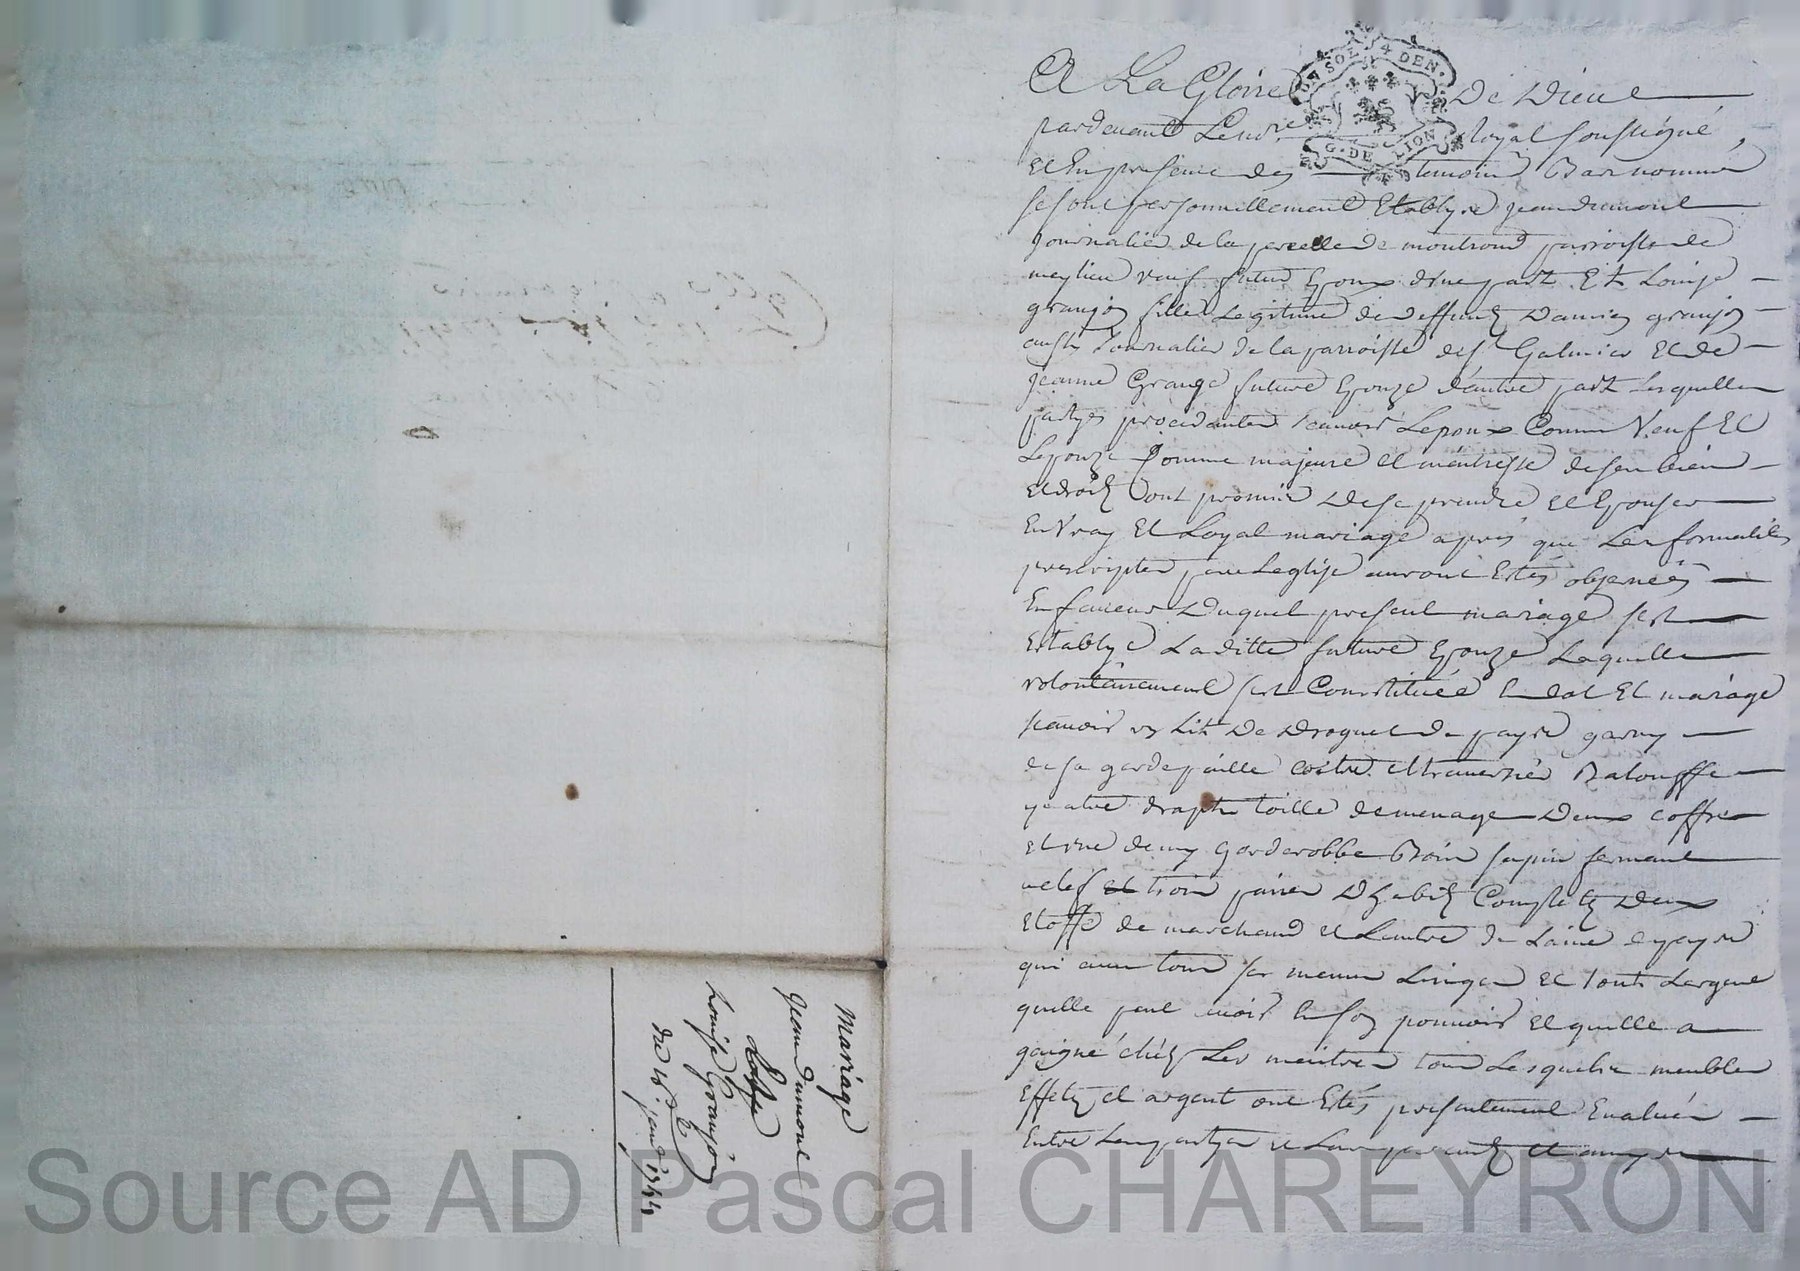 A La Gloire De Dieu
pardevant Le nore Royal soussigné,
Et En presence des temoins Bas nommés
se sont personnellement Etablys jean dumont
journalier de la parcelle de montrond parroisse de
meylieu veuf futur Epoux d'une part Et Louise
granjon fille Legitime de deffunts Damien granjon
aussy Journalier de la parroisse de st Galmier et de
jeanne Grange future Epouze d'autre part lesquelles
partyes procedantes scavoir Lepoux Comme Veuf Et
Lepouze Comme majeure et maitresse de ses biens
et droits ont promis De se prendre et Epouser
En Vray Et Loyal mariage apres que Les formalités
prescriptes par Leglise auront Estés observéés
En faveur Duquel present mariage sest
Establye Laditte future Epouze Laquelle
volontairement sest Constituée En dot Et mariage
scavoir un Lit De Droguet de pays garny
de sa gardepaille coitre et traversier Balouffe
quatre draps toille de menage Deux coffres
et une demy Garderobbe Bois sapin fermant
a clef et trois paires D'habits Complets Deux
Etoffe de marchand et Lautre de Laine de pays
qui avec tous ses menus Linges et tout Largent
quelle peut avoir En son pouvoir et quelle a
gaigné chéz Les maitres tous Lesquels meubles
Effets et argent ont Estés presentement Evalués
Entre Les partyes et Leurs parents et amys
SOL 4 DEN.
G. DE LION
Mariage
Jean dumont
Louise Granjon
du janv 1744
Source AD Pascal CHAREYRON